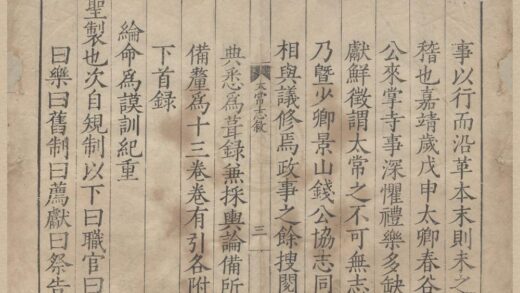 事以行而沿革本末則未之
稽也嘉靖歲戊申太卿春谷
公來掌寺事深懼禮樂多缺
獻鮮徵謂太常之不可無志
乃暨少卿景山錢公協志同
相與議修焉政事之餘搜閱
太常志敘
三
典悉為葺錄兼採輿論備所
備釐為十三卷卷有引各附
下首録
綸命為謨訓紀重
聖製也次自規制以下曰職官曰
曰樂曰舊制曰薦獻曰祭告